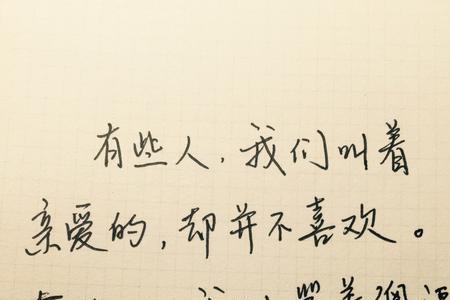 有些人，我们叫着
亲爱的，却并不喜欢。